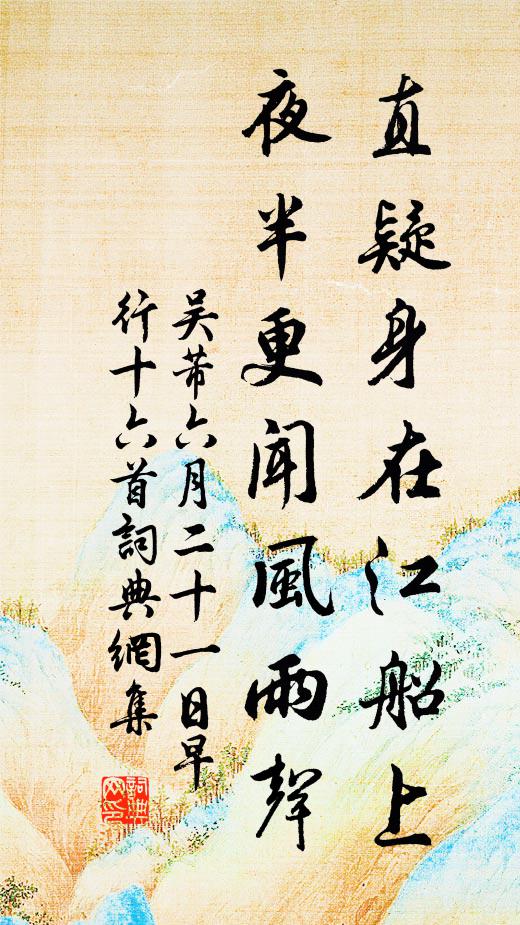 直疑身在江船上
夜半更聞風雨聲
吴芾六月二十一日早
行十六首詞典網集
詞典
网印